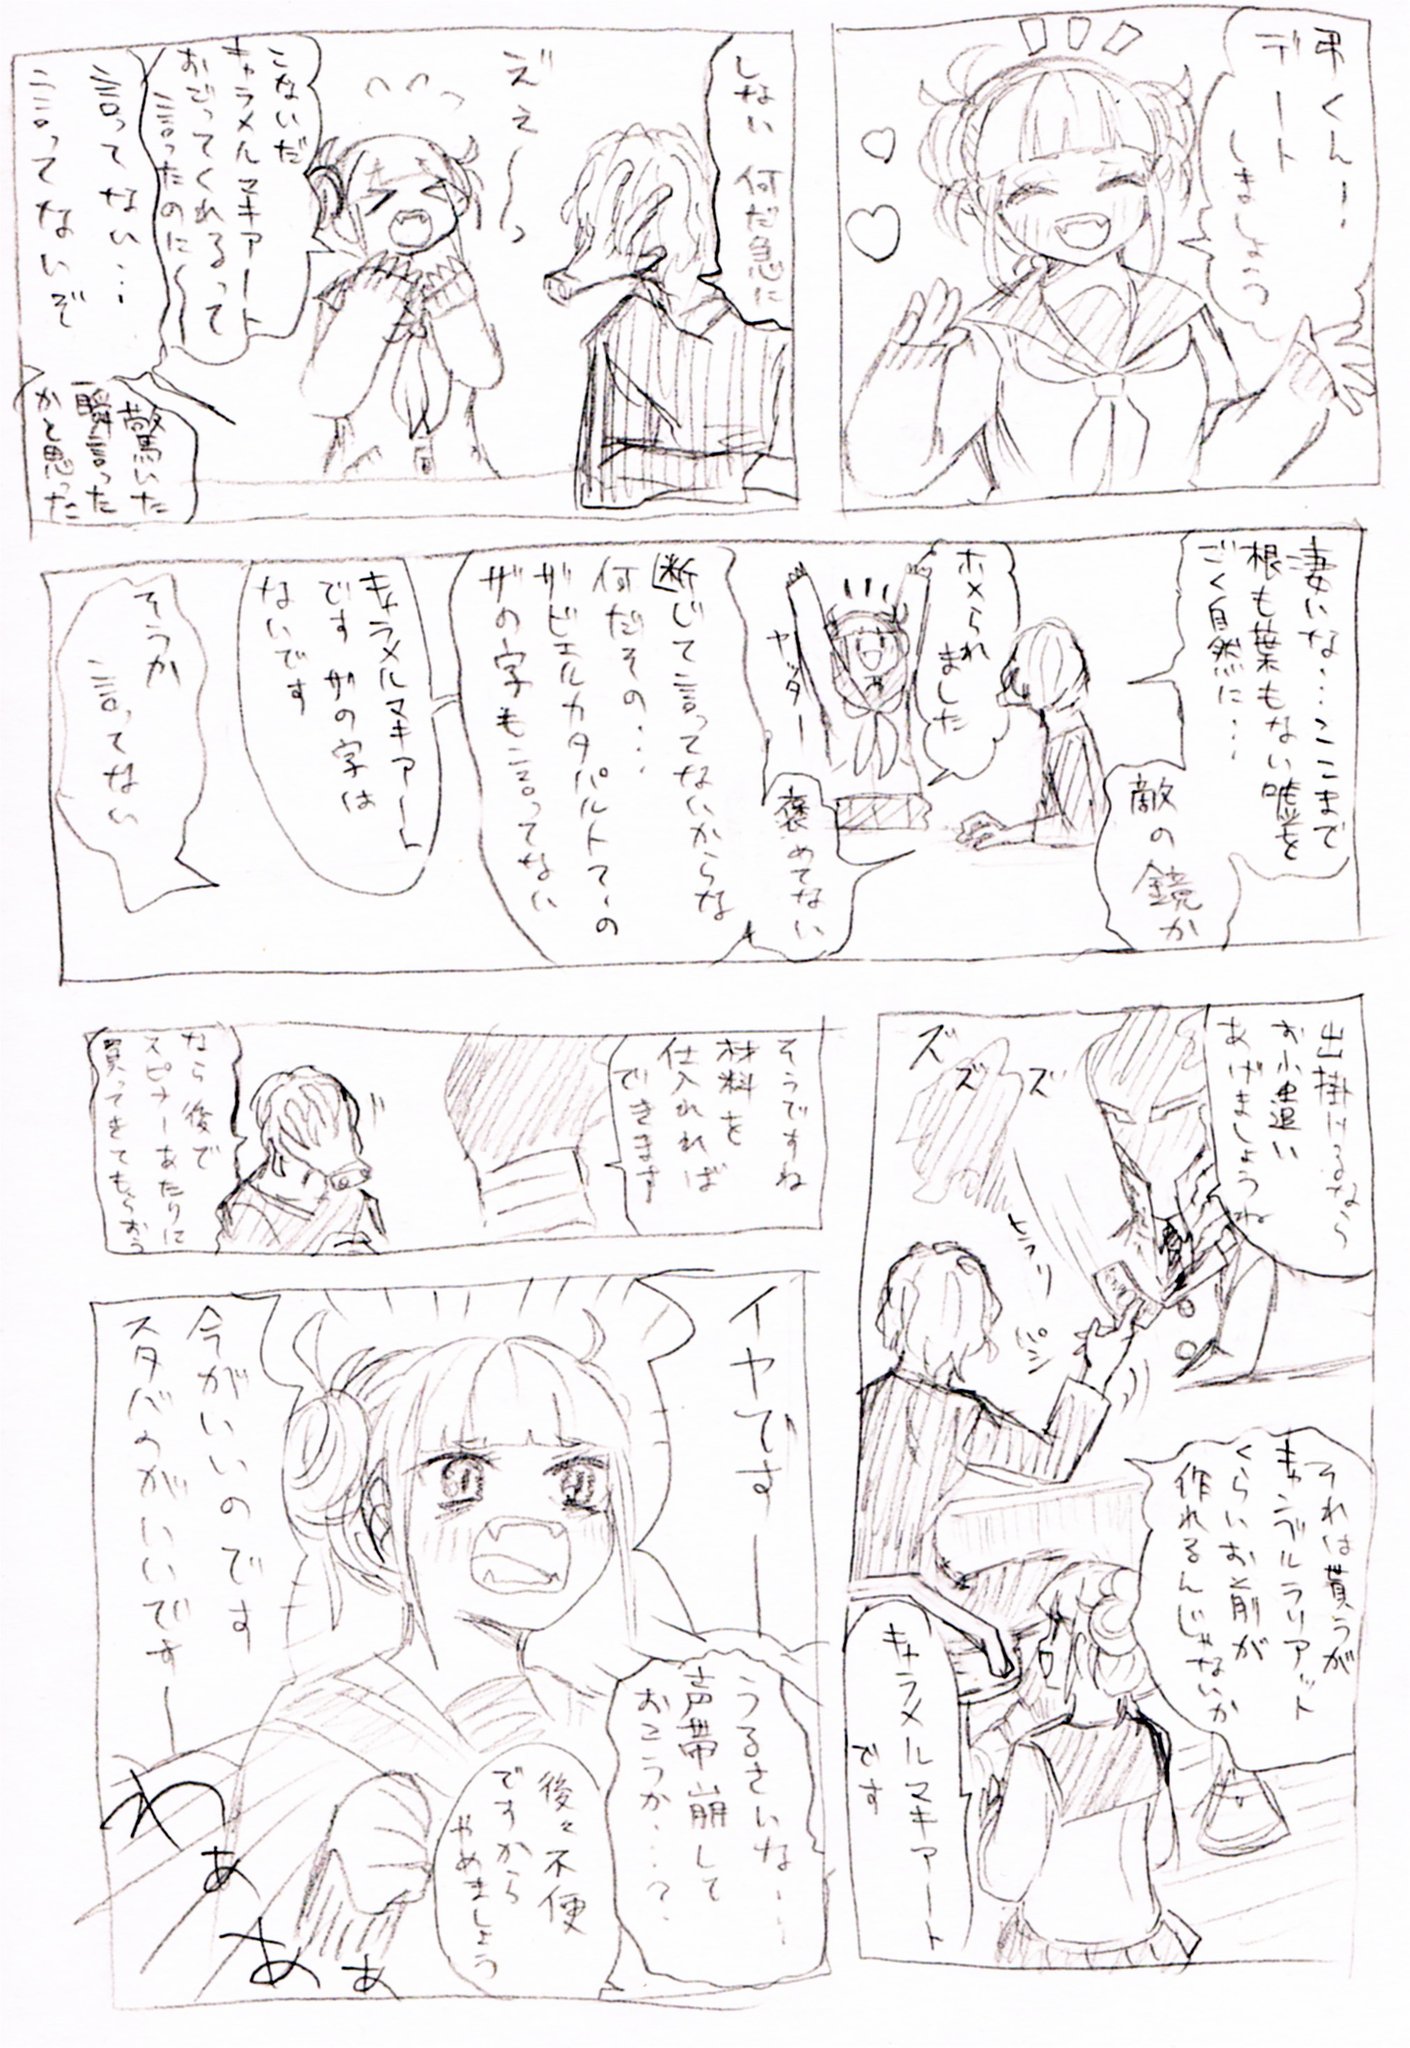 弔くん…
デート
しましょう
しない 何だ急に
ズえ〜〜っ
こないだ
キャラメルマキアート
おごってくれるって
言ったのに〜〜
言ってない…
言ってないぞ
驚いた
一瞬言った
かと思った
凄いな…ここまで
根も葉もない嘘を
ごく自然に…
敵の鏡か
ホメられ
ました
ヤッター
褒めてない
断じて言ってないからな
何だその…
ザビエルカタパルトマ、の
ザの字も言ってない
キャラメルマキアート
です ザの字は
ないです
そうか
言ってない
出掛けるなら
お小遣い
あげましょうね
ズ
ズ
ズ
パシ
それは貰うが
キャンブルラリアット
くらいお前が
作れるんじゃないか
キャラメルマキアート
です
そうですね
材料を
仕入れれば
できます
なら後で
スピナーあたりに
買ってきてもらおう
イヤですーー
今がいいのです
スタバのがいいですー
うるさいな…
声帯崩して
おこうか…？
後々不便
ですから
やめましょう
わぁ
あぁ